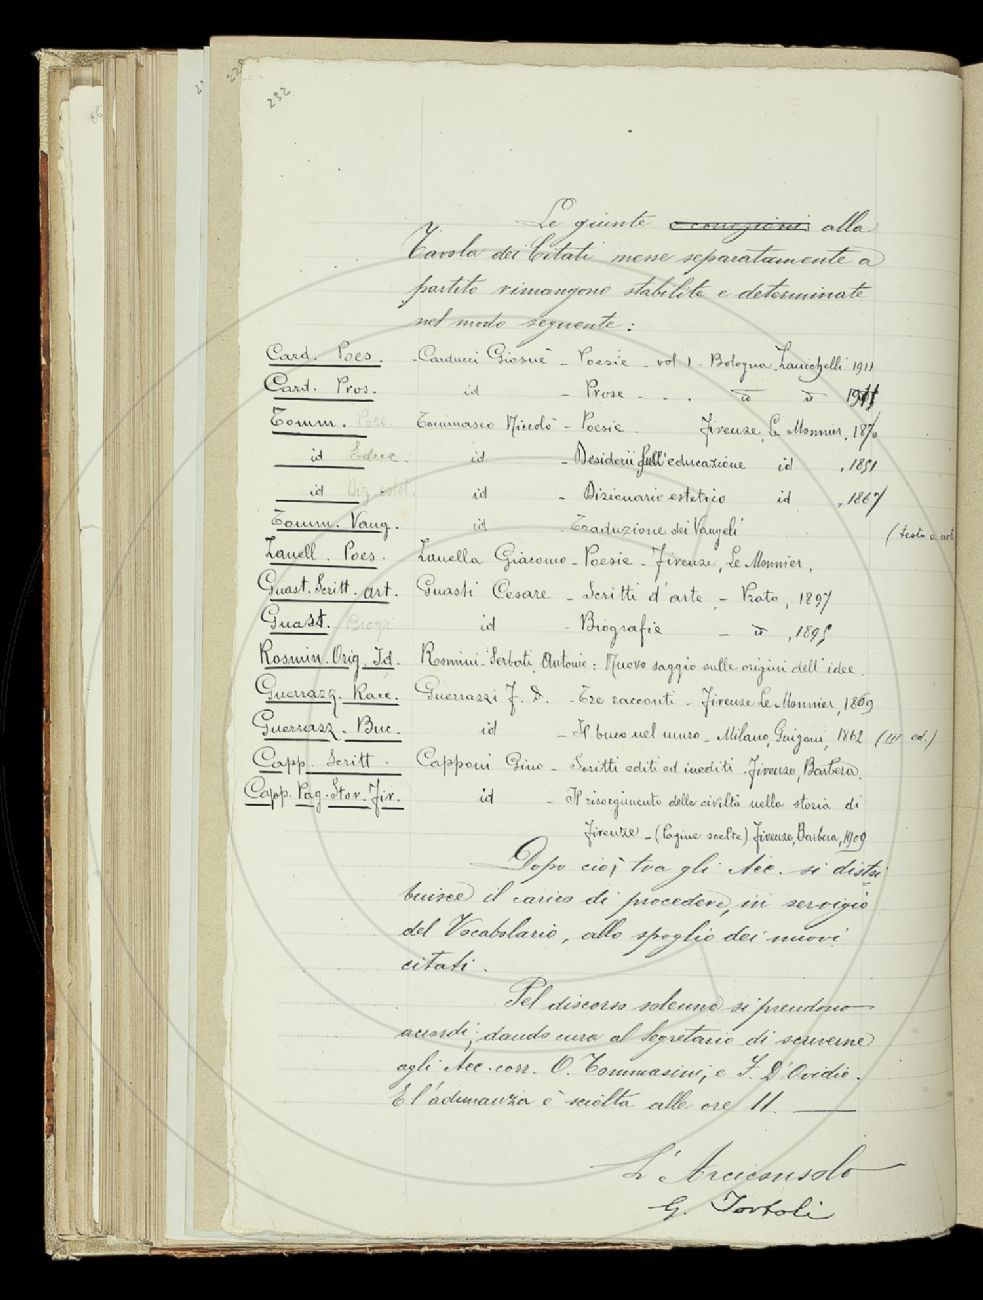 232
Le giunte e correzioni alla
Tavola dei Citati messe separatamente a
partito rimangono stabilite e determinate
nel modo seguente:
Card. Poes. Carducci Giosuè – Poesie – vol. 1. Bologna, Zanichelli 1911
Card. Pros. id – Prose . . . id id
Tomm. Poes. Tommaseo Niccolò – Poesie . Firenze, Le Monnier, 187
id Educ. id – Desiderii sull'educazione id , 1851
id Diz. estet. id – Dizionario estetico id , 1867
Tomm. Vang. id Traduzione dei Vangeli (testo e not
Zanell. Poes. Zanella Giacomo – Poesie – Firenze, Le Monnier,
Guast. Scritt. art. Guasti Cesare – Scritti d'arte – Prato, 1897
Guast. Biogr. id – Biografie – id , 1895
Rosmin. Orig. Id. Rosmini-Serbati, Antonio: Nuovo saggio sulle origini dell'idee.
Guerrazz. Racc. Guerrazzi F. D. – Tre racconti – Firenze Le Monnier, 1869
Guerrazz. Buc. id – Il buco nel muro – Milano, Guigoni, 1862 (III ed.)
Capp. Scritt. Capponi Gino – Scritti editi ed inediti . Firenze, Barbèra.
Capp. Pag. Stor. Fir. id – Il risorgimento della civiltà nella storia di
Firenze – (Pagine scelte) Firenze, Barbèra, 1909
Dopo ciò, tra gli Acc. si distri
buisce il carico di procedere, in servigio
del Vocabolario, allo spoglio dei nuovi
citati.
Pel discorso solenne si prendono
accordi; dando cura al Segretario di scriverne
agli Acc. corr. O. Tommasini, e F. D'Ovidio.
E l'adunanza è sciolta alle ore 11. —
L'Arciconsolo
G. Tortoli